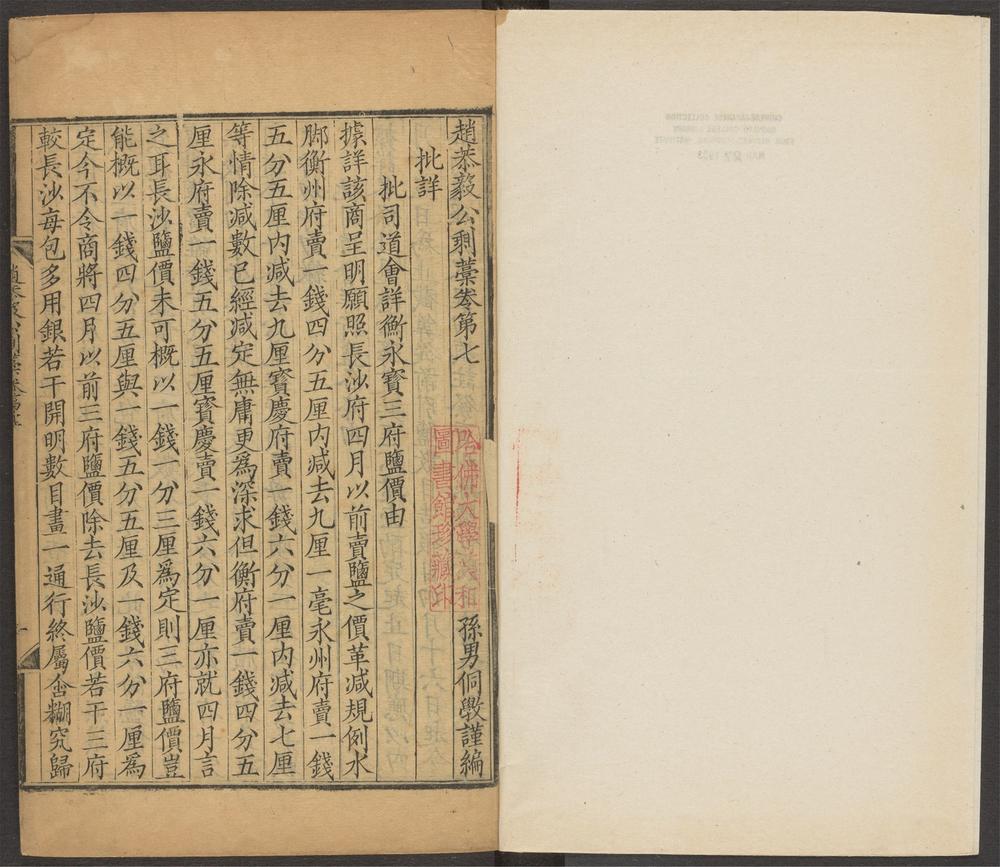 趙恭毅公剩藁卷第七
孫男侗斆謹編
批詳
批司道會詳衡永寶三府鹽價由
據詳該商呈明願照長沙府四月以前賣鹽之價革減規例水
脚衡州府賣一錢四分五厘内減去九厘一毫永州府賣一錢
五分五厘内減去九厘寶慶府賣一錢六分一厘内減去七厘
等情除減數已經減定無庸更為深求但衡府賣一錢四分五
厘永府賣一錢五分五厘寳慶賣一錢六分一厘亦就四月言
之耳長沙鹽價未可概以一錢一分三厘為定則三府鹽價豈
能概以一錢四分五厘與一錢五分五厘及一錢六分一厘為
定今不令商將四月以前三府鹽價除去長沙鹽價若干三府
較長沙每包多用銀若干開明數目畫一通行終屬含糊究歸
哈佛大學漢和
圖書館珍藏印
趙恭毅公剩藁卷
CHINESE-JAPANESE COLLECTION
HARVARD COLLEGE LIBRARY